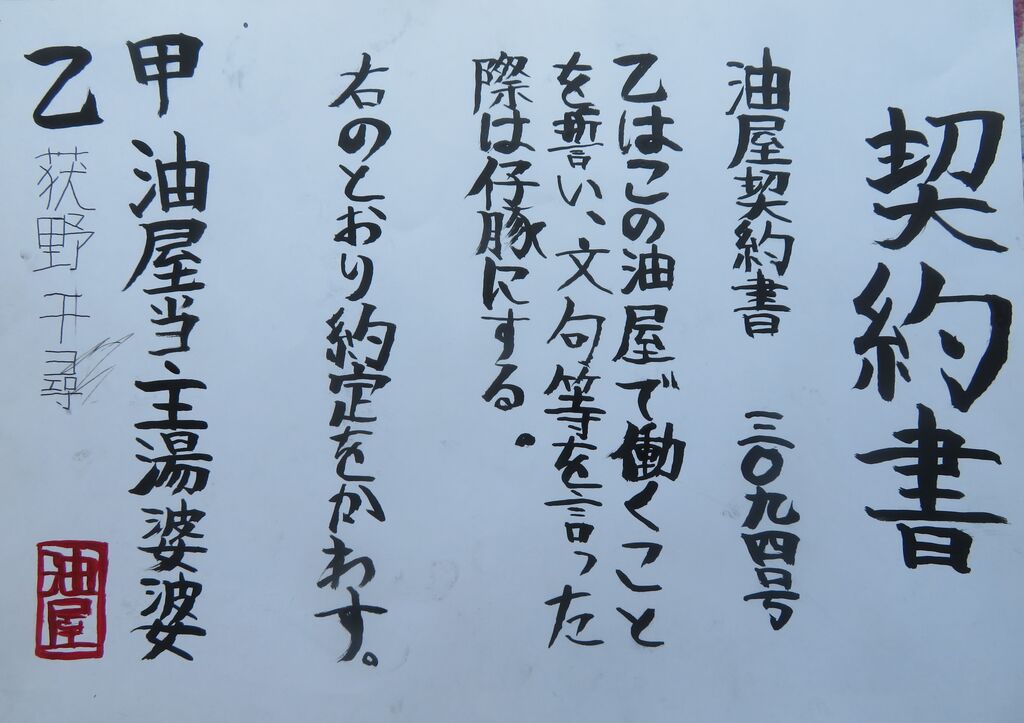 契約書
油屋契約書 三〇九四号
乙はこの油屋で働くこと
を誓い、文句等を言った
際は仔豚にする。
右のとおり約定をかわす。
甲 油屋当主湯婆婆
乙 荻野千尋
油屋